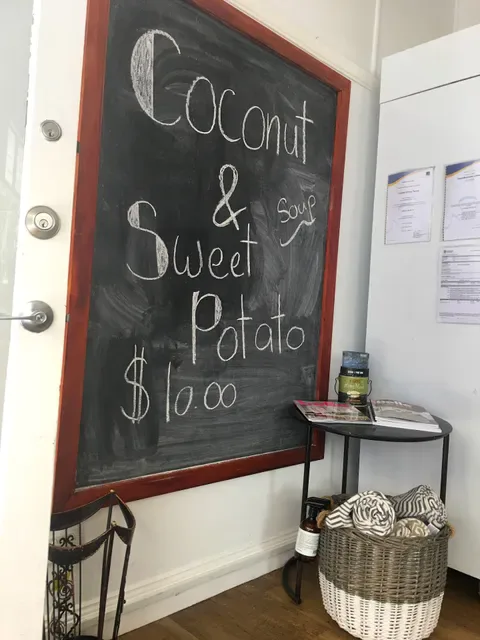 Coconut
&
Soup
Sweet
Potato
$10.00